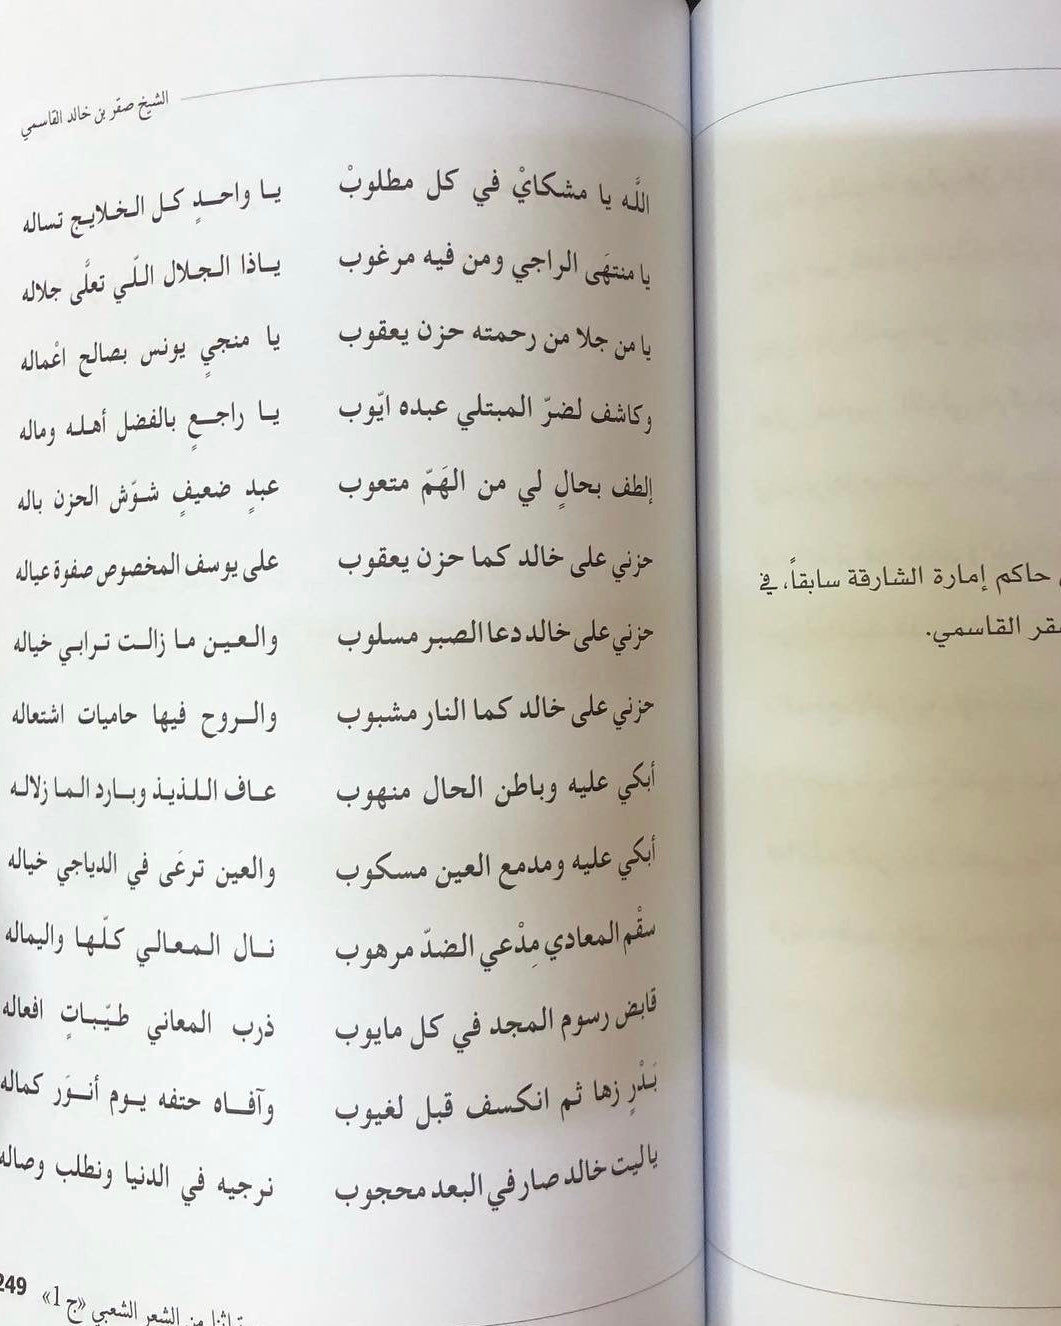 حاكم إمارة الشارقة سابقاً، في
القاسمي.
الشيخ صقر بن خالد القاسمي
اللَّه يا مشكايْ في كل مطلوبْ يا واحدٍ كل الخلايج تساله
يا منتهَى الراجي ومن فيه مرغوب ياذا الجلال اللّي تعلَّى جلاله
يا من جلا من رحمته حزن يعقوب يا منجيٍ يونس بصالح اعْماله
وكاشف لضرّ المبتلي عبده ايّوب يا راجعٍ بالفضل أهله وماله
إلطف بحالٍ لي من الهَمّ متعوب عبدٍ ضعيفٍ شوّش الحزن باله
حزني على خالد كما حزن يعقوب على يوسف المخصوص صفوة عياله
حزني على خالد دعا الصبر مسلوب والعين ما زالت ترابي خياله
حزني على خالد كما النار مشبوب والروح فيها حاميات اشتعاله
أبكي عليه وباطن الحال منهوب عاف اللذيذ وبارد الما زلاله
أبكي عليه ومدمع العين مسكوب والعين ترعَى في الدياجي خياله
سقْم المعادي مِدْعي الضدّ مرهوب نال المعالي كلّها واليماله
قابض رسوم المجد في كل مايوب ذرب المعاني طيّباتٍ افعاله
بَدْرٍ زها ثم انكسف قبل لغيوب وآفاه حتفه يوم أنوَر كماله
ياليت خالد صار في البعد محجوب نرجيه في الدنيا ونطلب وصاله
من الشعر الشعبي «ج 1» 249